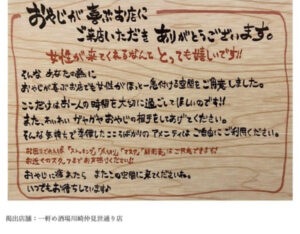 おやじが喜ぶお店に
ご来店いただき ありがとうございます。
女性が来てくれるなんて とっても嬉しいです!!
そんな あなたの為に
おやじが喜ぶお店でも女性がほっと一息付ける空間をご用意しました。
ここだけはお一人の時間を大切に過ごしてほしいのです!!
また、わいわい ガヤガヤおやじの相手をしてあげてください。
そんな気持ちで準備したこころばかりの アメニティは ご自由にご利用ください。
お困りでの人は「ストッキング」
おやじに疲れたら またこの空間に来てくださいね。
いつでもお待ちしています♪
掲出店舗：一軒め酒場川崎仲見世通り店